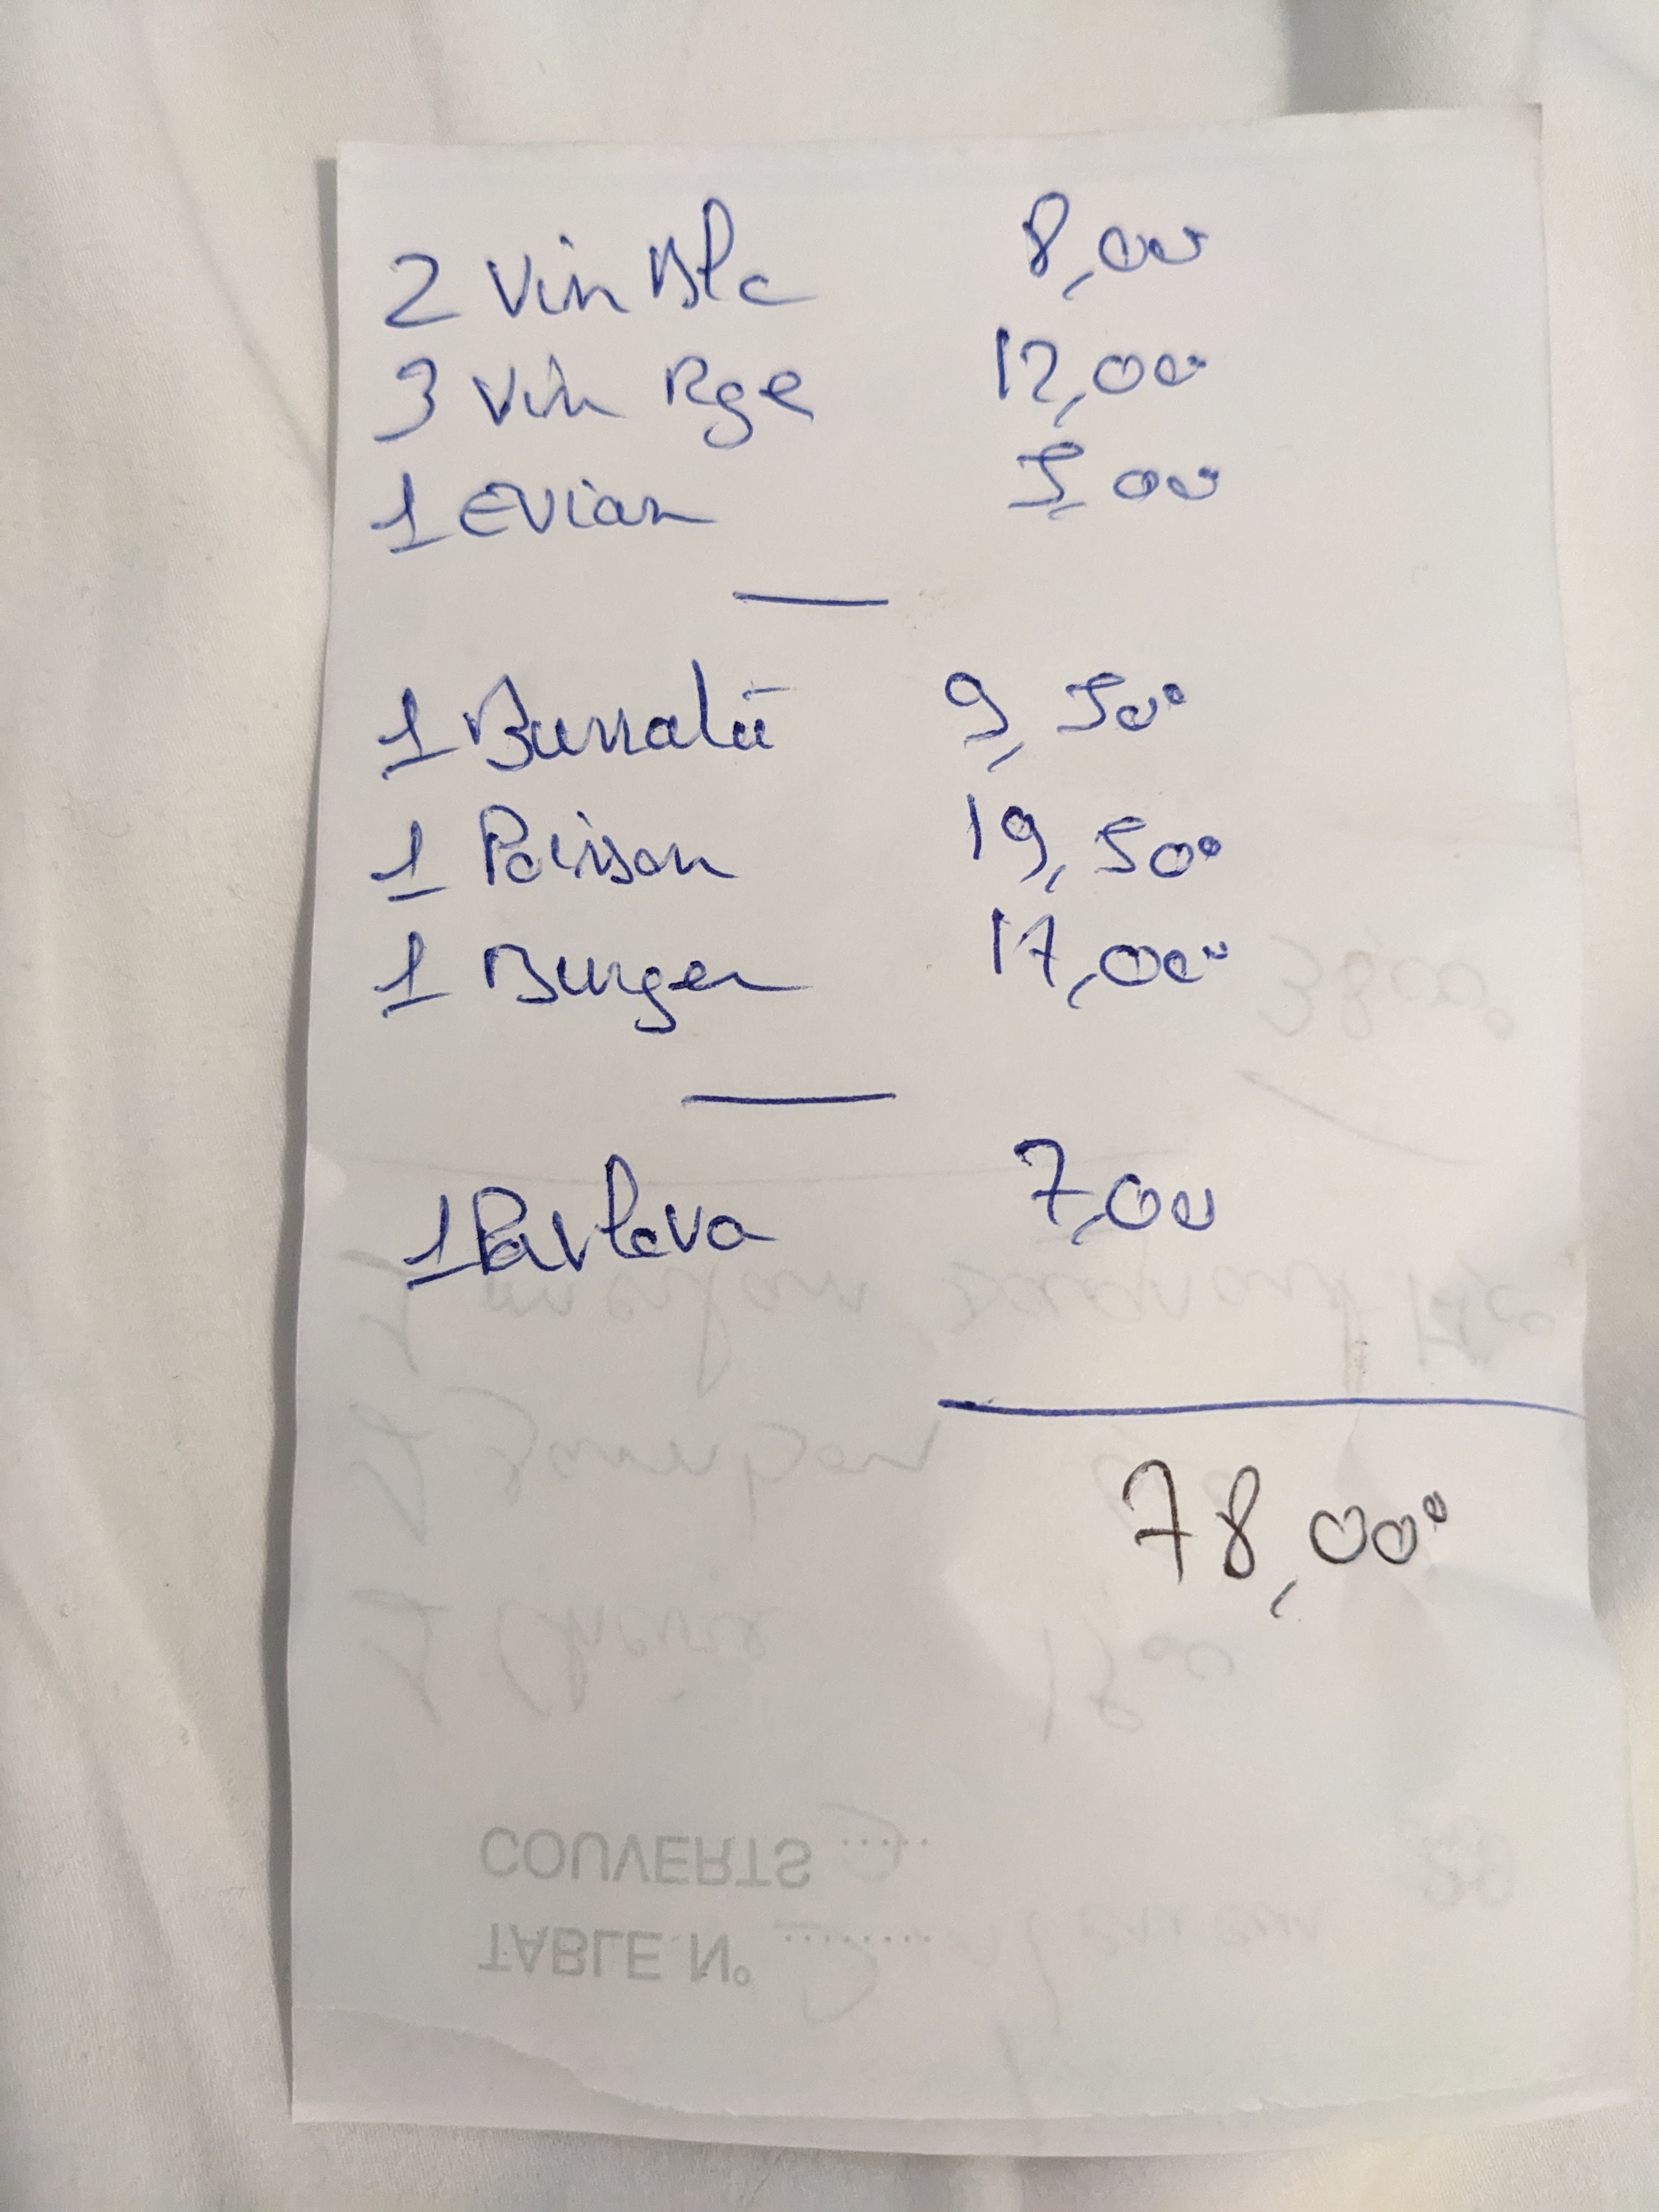 2 Vin Blc 8,00
3 Vin Rge 12,00
1 Evian 5,00
1 Burrata 9,50
1 Poisson 19,50
1 Burger 17,00
1 Pavlova 7,00
78,00
COUVERTS
TABLE N°